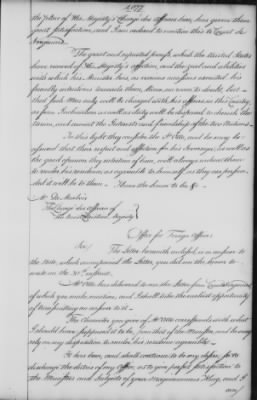 the Letter of His Majesty's Chargé des affaires here, has given them
great satisfaction, and I am ordered to mention this to Count de
The great and repeated proofs, which the United States
have received of His Majesty's affection, and the zeal and abilities
with which his Minister here, on various occasions manifested his
friendly intentions towards them, leave no room to doubt, but
that such Men only will be charged with his affairs in this Country,
as from Inclination as well as duty will be disposed to cherish the
Union, and commit the Interests and friendship of the two Nations.
In this light they consider Mr. Otto, and he may be
assured that their respect and affection for his Sovereign, as well as
the good opinion they entertain of him, will always induce them
to render his residence as agreeable to himself, as they are persuaded
it will be to them. I have the honor to be &c.
Mr. De Marbois
Chargé des affaires of
his most Christian Majesty
Office for Foreign Affairs
Sir,
The Letter herewith enclosed, is an answer to
the note, which accompanied the Letter, you did me the honor to
write on the 30th instant.
Mr. Otto has delivered to me the Letter from Count
of which you make mention, and I shall take the earliest opportunity
of transmitting an answer to it.
The Character you give of Mr. Otto corresponds with what
I should have supposed it to be, from that of the Minister, and he may
rely on my disposition to render his residence agreeable.
It has been, and shall continue to be my desire, so to
discharge the duties of my Office, as to give perfect satisfaction to
the Ministers and Subjects of your Magnanimous King, and I
am